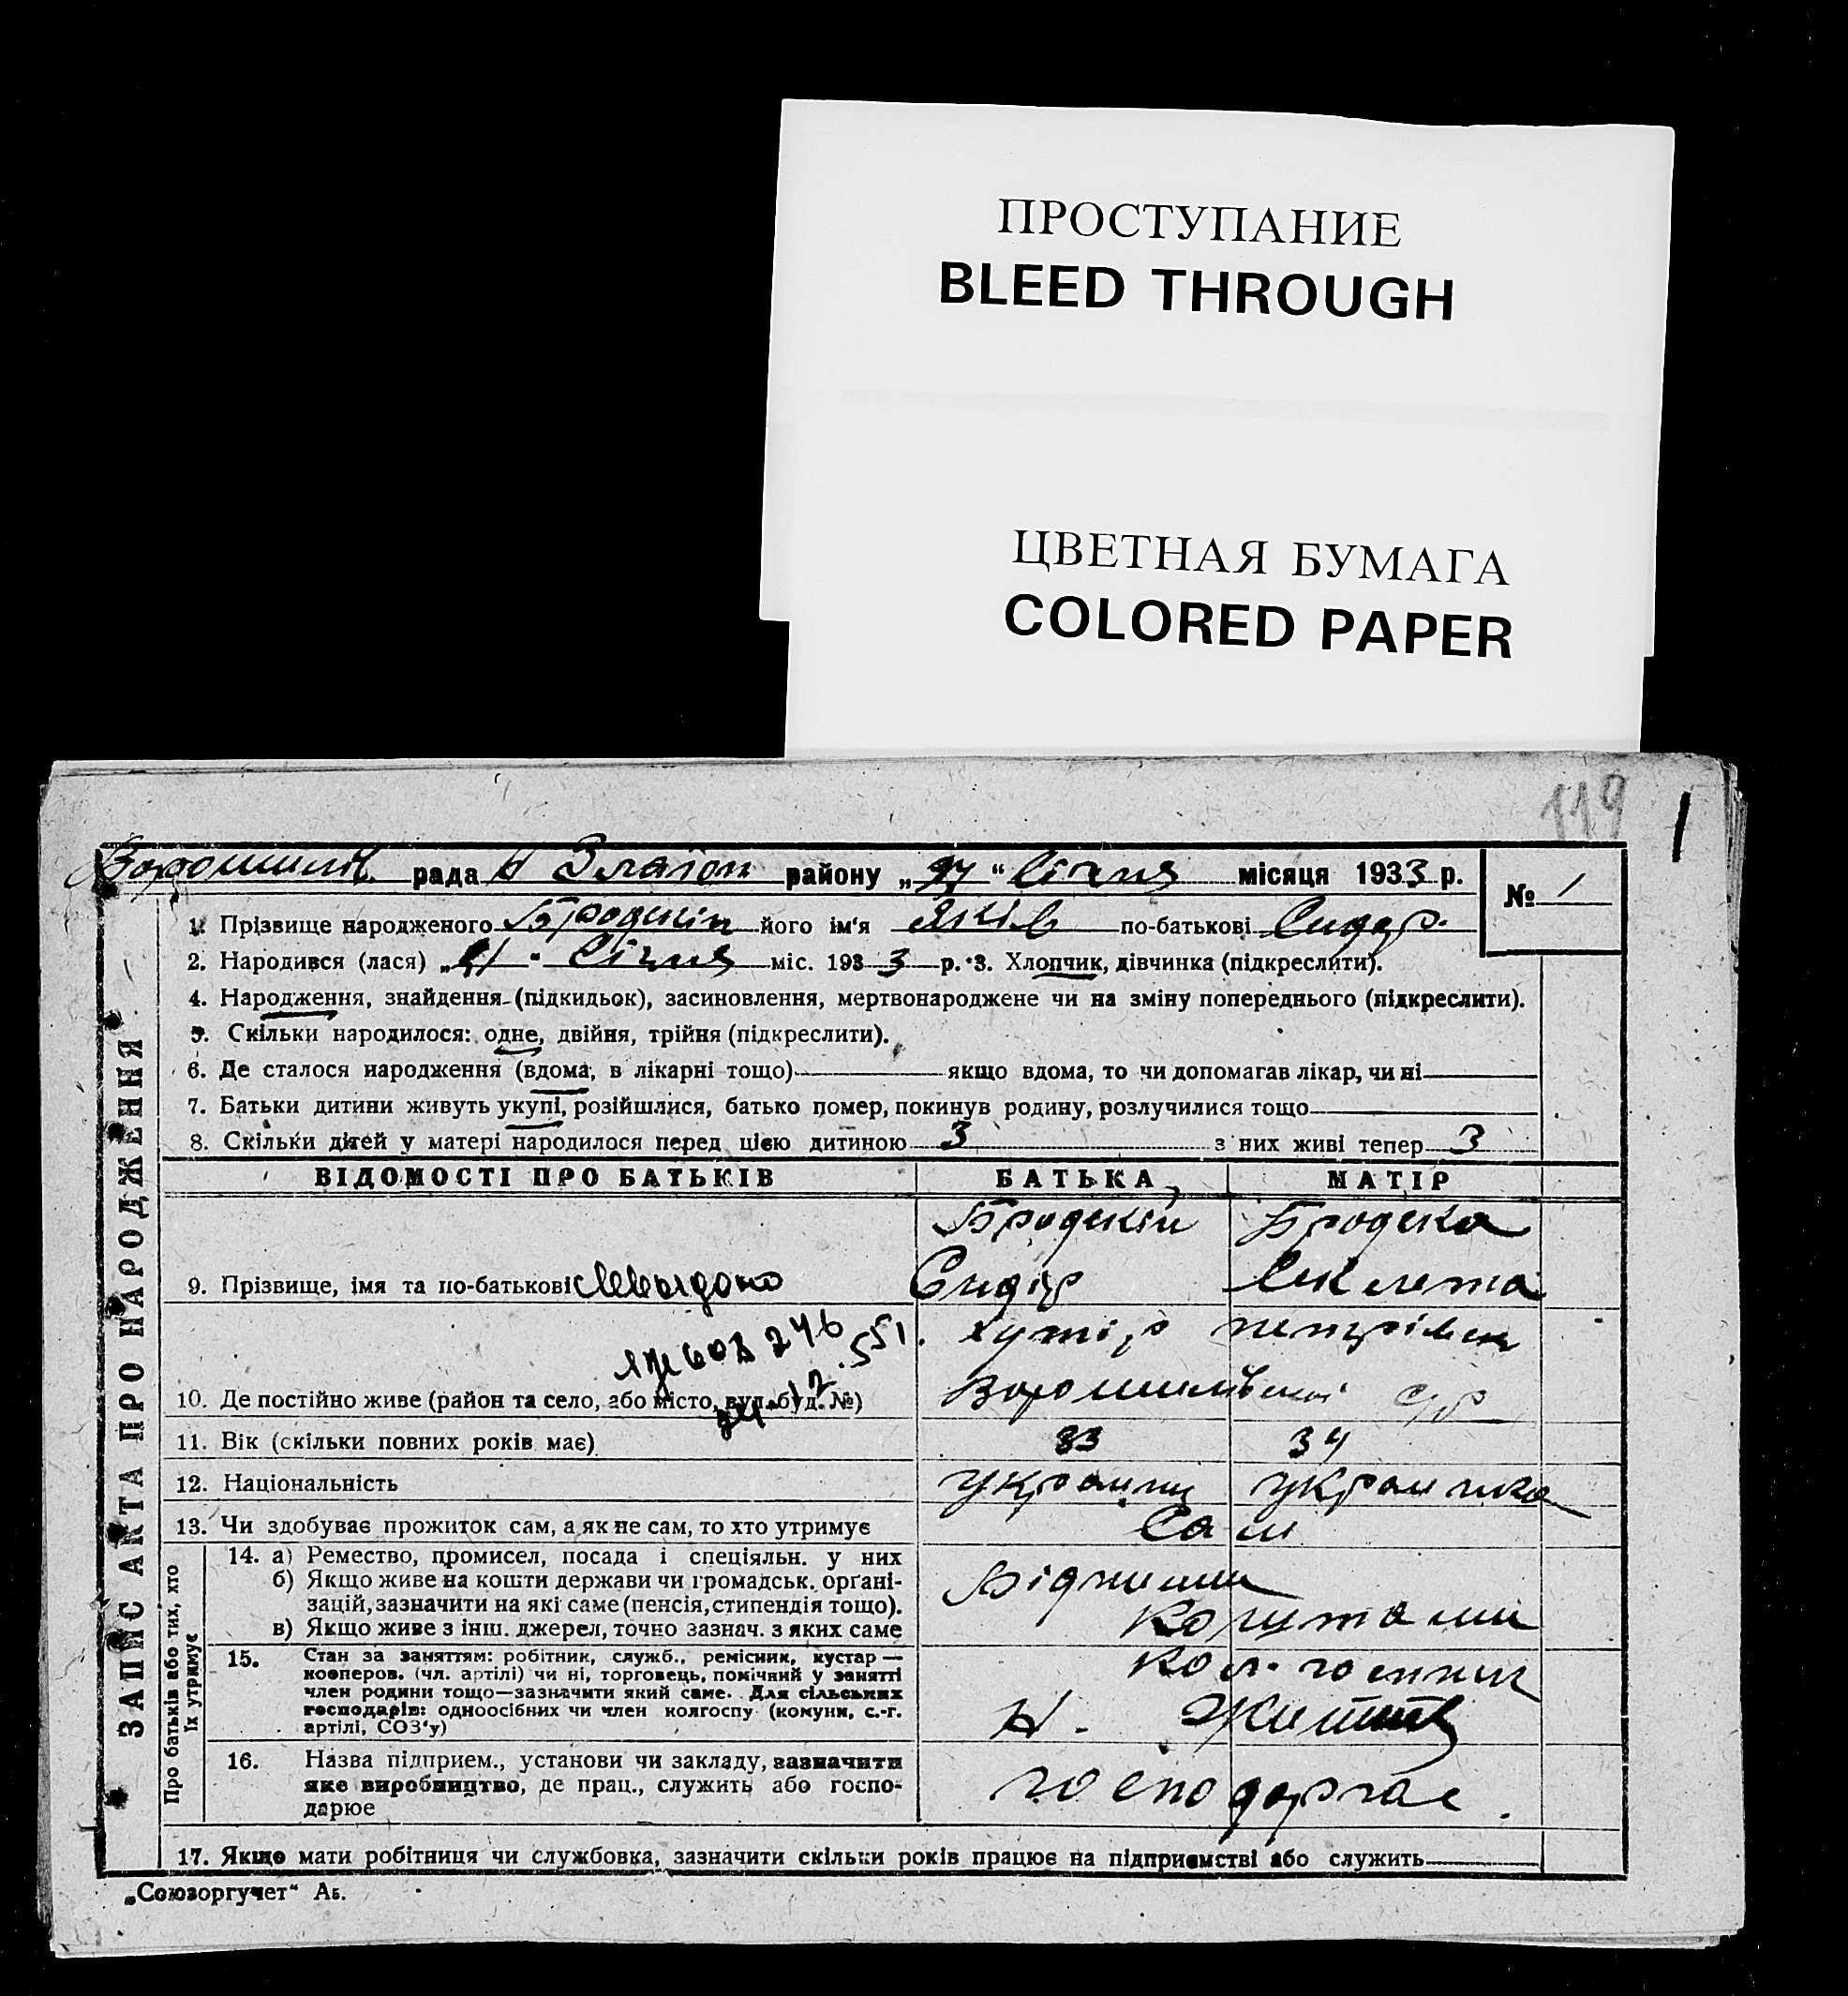 ПРОСТУПАНИЕ
BLEED THROUGH
ЦВЕТНАЯ БУМАГА
COLORED PAPER
119
1
рада район району „ “ Січня місяця 1933 р.
№ 1
1. Прізвище народженого Бродскій його ім'я Яків по-батькові Сидор.
2. Народився (лася) „ “ Січня міс. 1933 р. 3. Хлопчик, дівчинка (підкреслити).
4. Народження, знайдення (підкидьок), засиновлення, мертвонароджене чи на зміну попереднього (підкреслити).
5. Скільки народилося: одне, двійня, трійня (підкреслити).
6. Де сталося народження (вдома, в лікарні тощо) якщо вдома, то чи допомагав лікар, чи ні
7. Батьки дитини живуть укупі, розійшлися, батько помер, покинув родину, розлучилися тощо
8. Скільки дітей у матері народилося перед цією дитиною 3 з них живі тепер 3
ВІДОМОСТІ ПРО БАТЬКІВ БАТЬКА МАТІР
Бродскій Бродска
9. Прізвище, імя та по-батькові Сидір
хутір
10. Де постійно живе (район та село, або місто, вул. буд. №) с/р
11. Вік (скільки повних років має) 33 34
12. Національність
13. Чи здобуває прожиток сам, а як не сам, то хто утримує Сам
14. а) Ремество, промисел, посада і спеціяльн. у них
б) Якщо живе на кошти держави чи громадськ. органі-
зацій, зазначити на які саме (пенсія, стипендія тощо).
в) Якщо живе з інш. джерел, точно зазнач. з яких саме
15. Стан за заняттям: робітник, служб., ремісник, кустар —
кооперов. (чл. артілі) чи ні, торговець, помічний у занятті
член родини тощо—зазначити який саме. Для сільських
господарів: одноосібних чи член колгоспу (комуни, с.-г.
артілі, СОЗ'у)
16. Назва підприєм., установи чи закладу, зазначити
яке виробництво, де прац., служить або госпо-
дарює
17. Якщо мати робітниця чи службовка, зазначити скільки років працює на підприємстві або служить
ЗАПИС АКТА ПРО НАРОДЖЕННЯ
Про батьків або тих, хто
їх утримує
„Союзоргучет“ Аб.